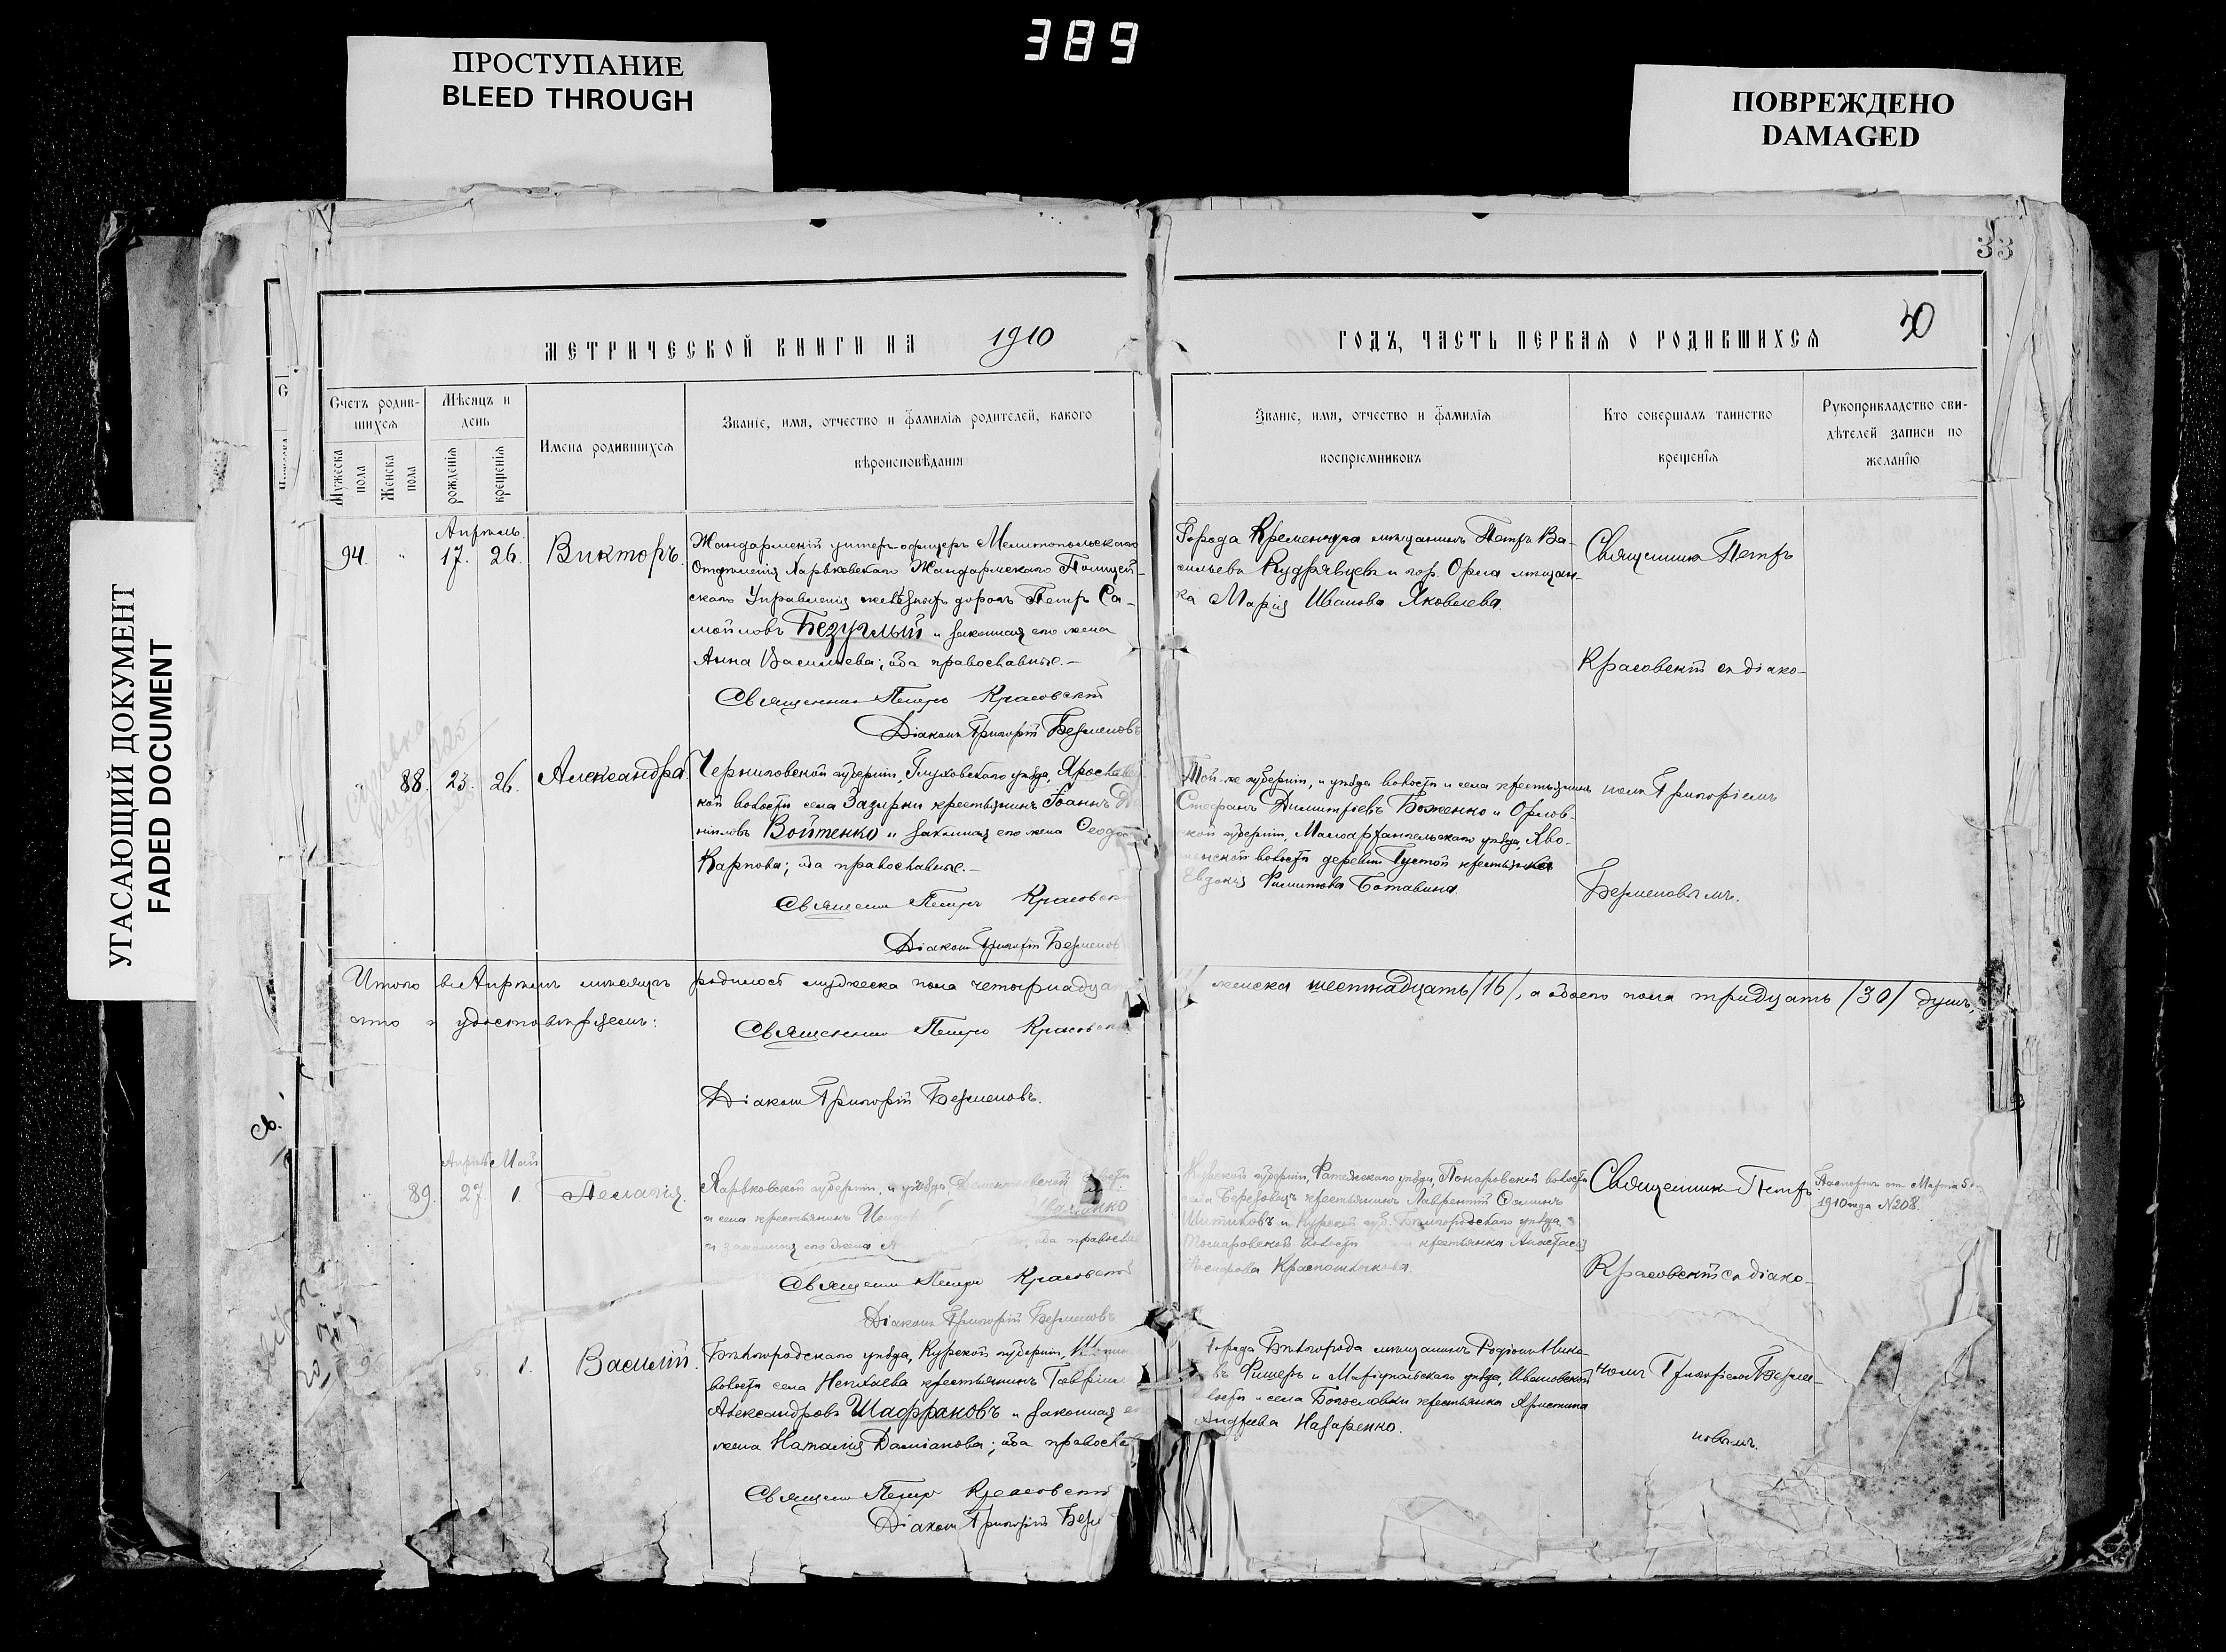 389
ПРОСТУПАНИЕ
BLEED THROUGH
ПОВРЕЖДЕНО
DAMAGED
УГАСАЮЩИЙ ДОКУМЕНТ
FADED DOCUMENT
33
30
МЕТРИЧЕСКОЙ КНИГИ НА 1910
ГОДЪ, ЧАСТЬ ПЕРВАЯ О РОДИВШИХСЯ
Счетъ родив-
шихся
Мѣсяцъ и
день
Мужеска
пола
Женска
пола
рожденія
крещенія
Имена родившихся
Званіе, имя, отчество и фамилія родителей, какого
вѣроисповѣданія
Званіе, имя, отчество и фамилія
воспріемниковъ
Кто совершалъ таинство
крещенія
Рукоприкладство сви-
дѣтелей записи по
желанію
Апрѣль
94. " 17. 26. Викторъ.
Жандармскій унтеръ-офицеръ Мелитопольскаго
Отдѣленія Харьковскаго Жандармскаго Полицей-
скаго Управленія желѣзныхъ дорогъ Петръ Са-
мойловъ Безуглый и законная его жена
Анна Васильева; оба православные.-
Священникъ Петръ Красовскій
Діаконъ Григорій Безменовъ
Города Кременчуга мѣщанинъ Петръ Ва-
сильевъ Кудрявцевъ и гор. Орла мѣщан-
ка Марія Иванова Яковлева.
Священникъ Петръ
Красовскій съ діако-
88. 23. 26. Александра.
Черниговской губерніи, Глуховскаго уѣзда, Ярослав
кой волости села Зазирки крестьянинъ Іоаннъ
ниловъ Войтенко и законная его жена Ѳеодо
Карпова; оба православные.-
Священникъ Петръ Красовск
Діаконъ Григорій Безменов
Той-же губерніи, и уѣзда волости и села крестьянинъ
Стефанъ Димитріевъ Боженко и Орлов-
ской губерніи, Малоархангельскаго уѣзда,
волости деревни Густой крестьянка
Евдокія Филиппова
номъ Григоріемъ
Безменовымъ.
Итого въ Апрѣлѣ мѣсяцѣ родилось мужеска пола четырнадцат
женска шестнадцать /16/, а обоего пола тридцать /30/ душъ,
что и удостовѣряемъ:
Священникъ Петръ Красовск
Діаконъ Григорій Безменовъ.
Апрѣль Май
89. 27. 1. Пелагія.
Харьковской губерніи, и уѣзда, волости
и села крестьянинъ
и законная его жена А оба правосла
Священникъ Петръ Красовскій
Діаконъ Григорій Безменовъ
Курской губерніи, Фатежскаго уѣзда, волости
села Березовца крестьянинъ Лаврентій
и Курской губ. Бѣлгородскаго уѣзда
Томаровской волости крестьянка Анастасія
Священникъ Петръ
Красовскій съ діако-
Паспортъ отъ Марта 5
1910 года №208.
1. Василій.
Бѣлгородскаго уѣзда, Курской губерніи,
волости села Нехаева крестьянинъ Гавріилъ
Александровъ Шафрановъ и законная е
жена Наталія Даміанова; оба правосла
Священникъ Петръ Красовскій
Діаконъ Григорій Безм
города Бѣлгорода мѣщанинъ Родіонъ Ника
въ Фишеръ и Маріупольскаго уѣзда, Ивановской
волости и села Богословки крестьянка Христина
Андреева Назаренко.
номъ Григоріемъ Безме-
новымъ.